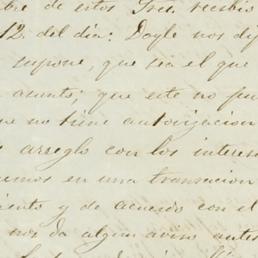 bre de estos Tres recibio
12. del dia: Doyle nos dij
supone, que sea el que
asunto; que este no pue
ue no tiene autorizacion
arreglo con los interes
emos en una transacion
iento y de acuerdo con el
nos da algun aviso antes